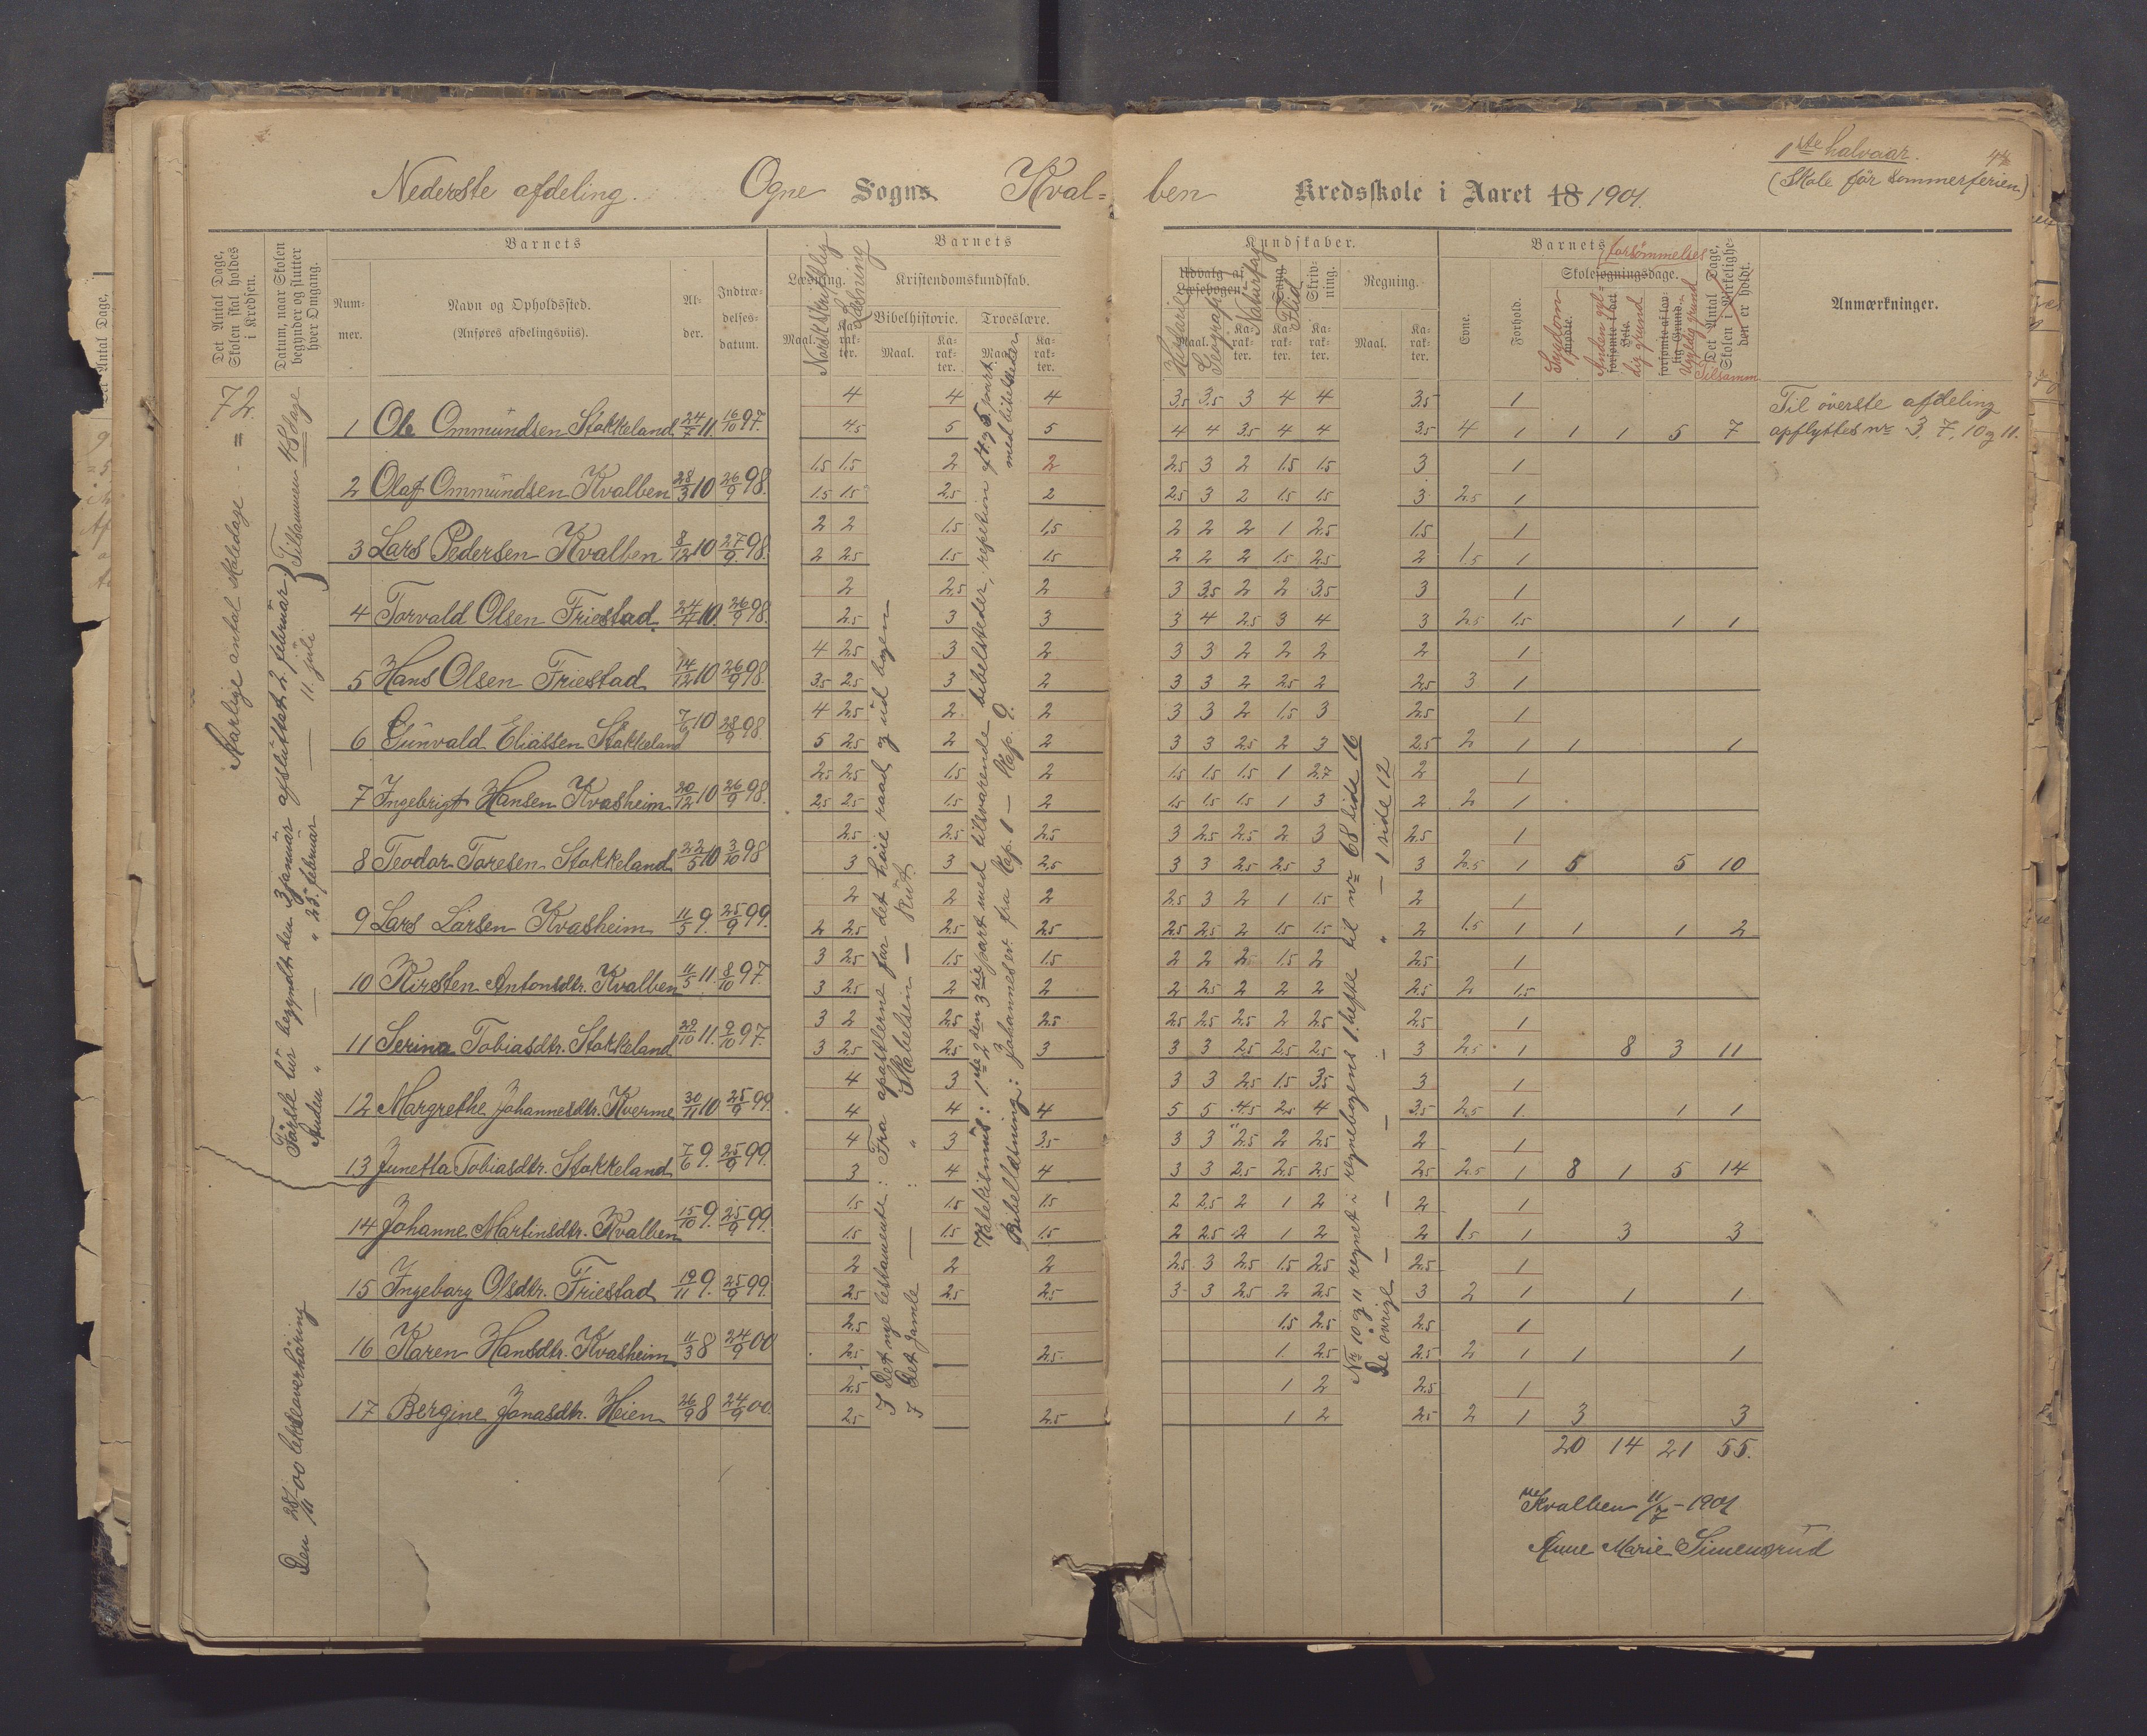 1ste halvaar.
(Skole før sommerferien)
Nederste afdeling. Ogne Sogns Kvalben Kredsskole i Aaret 18 1901.
Det Antal Dage, Skolen skal holdes i Kredsen.
Datum, naar Skolen begynder og slutter hver Omgang.
Barnets
Nummer.
Navn og Opholdssted.
(Anføres afdelingsviis).
Alder.
Indtrædelsesdatum.
Barnets
Læsning.
Norsk skriftlig
Læsning
Kristendomskundskab.
Bibelhistorie.
Troeslære.
Maal.
Karakter.
Maal.
Karakter.
Maal.
Karakter.
Kundskaber.
Udvalg af Læsebogen.
Historie
Geografi
Naturfag
Sang
Flid
Skrivning.
Regning.
Maal.
Karakter.
Karakter.
Karakter.
Maal.
Karakter.
Barnets forsømmelser
Evne.
Forhold.
Skolesøgningsdage.
Sygdom
mødte.
Anden gyldig grund
forsømte i det Hele.
Ugyldig grund
forsømte af lovlig Grund.
Det Antal Dage, Skolen i Virkeligheden er holdt.
Tilsamm.
Anmærkninger.
72
Aarlige antal skoledage = 72
Første tur begyndt den 3 januar afsluttet 2. februar
Anden " — " 25. februar — 11. juli
Tilsammen 48 dage
Den 28/11 00 lekseoverhøring
4 4 4 3.5 3.5 3 4 4 3.5 1
1 Ole Ommundsen Stokkeland 24/7 11. 16/10 97. 4.5 5 5 4 4 3.5 4 4 3.5 4 1 1 1 5 7
1.5 1.5 2 2 2.5 3 2 1.5 1.5 3 1
2 Olaf Ommundsen Kvalben 28/3 10 26/9 98. 1.5 1.5 2.5 2 2.5 3 2 1.5 1.5 3 2.5 1
2 2 1.5 1.5 2 2 2 1 2.5 1.5 1
3 Lars Pedersen Kvalben 8/12 10. 27/9 98. 2 2.5 1.5 1.5 2 2 2 1.5 2.5 2 1.5 1
2 2.5 2 3 3.5 2 2 3.5 3 1
4 Torvald Olsen Friestad 24/4 10. 26/9 98. 2.5 3 3 3 4 2.5 3 4 3 2.5 1.5 1 1
4 2.5 3 2 3 3 2 2 2 2 1
5 Hans Olsen Friestad 14/12 10 26/9 98. 3.5 2.5 3 2 3 3 2 2.5 2 2.5 3 1
4 2.5 2 2 3 3 2 1.5 3 2.5 1
6 Gunvald Eliassen Stokkeland 7/6 10 28/9 98. 5 2.5 2 2 3 3 2.5 2 3 2.5 2 1 1 1
2.5 2.5 1.5 2 1.5 1.5 1.5 1 2.7 2 1
7 Ingebrigt Hansen Kvasheim 20/12 10 26/9 98. 2.5 2.5 1.5 2 1.5 1.5 1.5 1 3 2 2 1
2.5 2.5 2.5 3 2.5 2.5 2 3 2.5 1
8 Teodor Toresen Stokkeland 22/5 10 3/10 98 3 3 2.5 3 3 2.5 2.5 3 3 2.5 1 5 5 10
2 2 2 2.5 3 2 1 1.5 2 1
9 Lars Larsen Kvasheim 11/5 9. 25/9 99. 2 2.5 2.5 2.5 2.5 2.5 2 1.5 1.5 2 1.5 1 1 1 2
3 2.5 1.5 1.5 2 2 2 1.5 2 2.5 1
10 Kirsten Antonsdtr. Kvalben 11/5 11. 8/10 97. 3 2.5 2 2 2 2.5 2 2 2 2.5 2 1.5
3 2 2.5 2.5 2.5 2.5 2.5 2 2.5 2.5 1
11 Serina Tobiasdtr. Stokkeland 29/10 11. 9/10 97. 3 2.5 2.5 3 3 3 2.5 2.5 2.5 3 2.5 1 8 3 11
4 3 3 3 2.5 1.5 3.5 3 1
12 Margrethe Johannesdtr. Kverme 30/11 10 25/9 99. 4 4 4 5 5 4.5 2.5 4 3.5 2.5 1 1 1
4 3 3.5 3 3 2.5 2 2.5 2 1
13 Junetta Tobiasdtr. Stokkeland 7/6 9. 25/9 99. 3 4 4 3 3 2.5 2.5 2.5 2.5 2.5 1 8 1 5 14
1.5 1.5 1.5 2 2.5 2 1 2 2 1
14 Johanne Martinsdtr. Kvalben 15/10 9. 25/9 99. 1.5 1.5 1.5 2 2.5 2 1 2 2 1.5 1 3 3
2 2 2 2.5 3 2.5 1.5 2.5 2.5 1
15 Ingeborg Olsdtr. Friestad 19/11 9. 25/9 99. 2.5 2.5 2.5 3 3 2.5 2 2.5 3 2 1 1 1
2.5 1.5 2.5 2.5 1
16 Karen Hansdtr. Kvasheim 11/3 8 24/9 00 2.5 2.5 1 2.5 2.5 2 1 1 1
2.5 1 2 2.5 1
17 Bergine Jonasdtr. Heien 26/9 8 24/9 00. 2.5 2.5 1 2 2.5 2 1 3 3
20 14 21 55.
I Det nye testamente: Fra apostlerne for det høie raad og ud bogen
I Det Gamle — : " Skabelsen — Rut.
Katekismus: 1ste & den 3die part med tilsvarende bibelsteder, repetion af 4 og 5. part med bibelsteder
Bibellæsning: Johannes ev. fra Kap. 1 — Kap. 9.
Nr. 10 og 11 regnet i regnebogens 1. hefte til nr 68 side 16
De øvrige — — — — " — 1 side 12
Til øverste afdeling
opflyttes nr 3, 7, 10 og 11.
Kvalben 11/7 – 1901
Anne Marie Simensrud